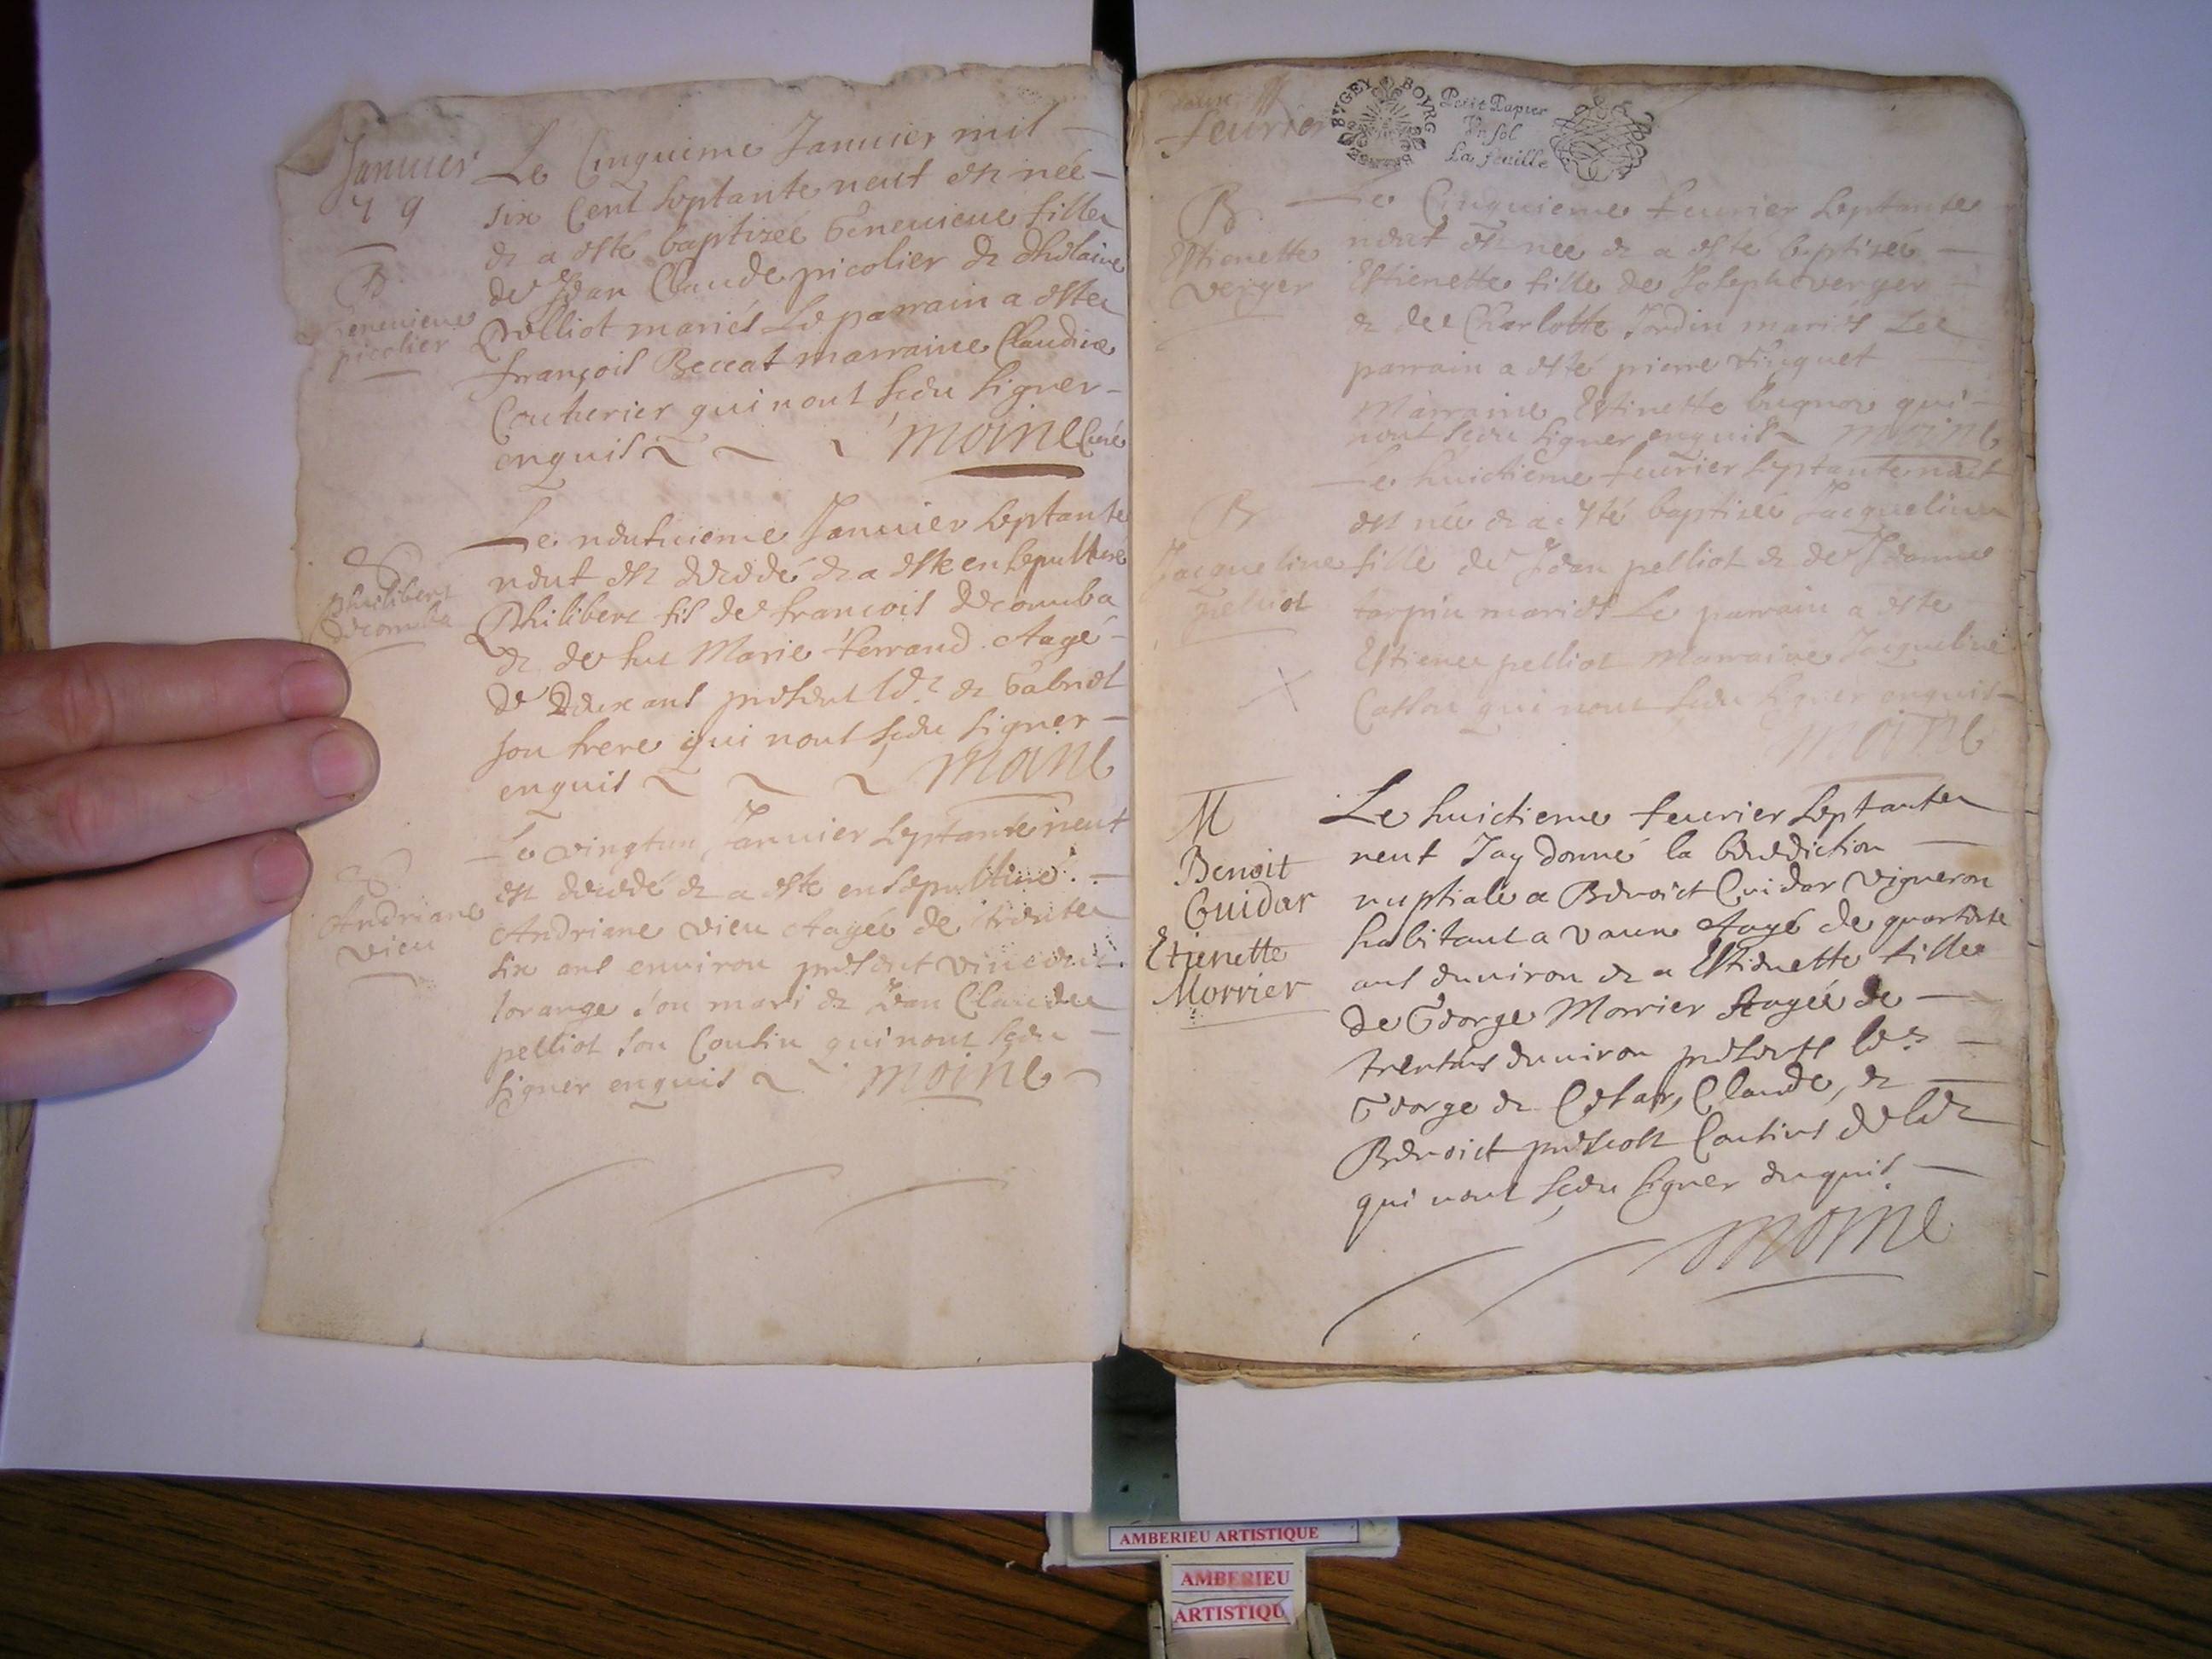 Januier
79
B
Geneuieue
picolier
Le Cinquieme Januier mil
six Cent septante neuf est née
& a esté baptizée Geneuieue fille
de Jean Claude picolier &
pelliot mariés Le parrain a esté
françois Beccat marraine Claudine
Coutherier qui nont sçeu signer
enquis moine Curé
Philibert
Decomba
Le neufuieme Januier septante
neuf est decedé & a esté ensepulturé
Philibert fils de francois Decomba
& de Marie ferrand Aagé
de Deux ans present led. & Gabriel
son frere qui nont sçeu signer
enquis moine
Andriane
vieu
Le vingtun Januier septante neuf
est decedé & a esté ensepulturé
Andriane vieu Aagée de trente
six ans enuiron present vincent
lorange son mari & Jean Claude
pelliot son Cousin qui nont sçeu
signer enquis moine
feurier
BVGEY BOVRG
Petit Papier
Vn sol
La feuille
B
Estienette
verger
Le Cinquieme feurier septante
neuf est nee & a esté baptisée
Estienette fille de Joseph verger
& de Charlotte Jordin mariés Le
parrain a esté pierre
Marraine Estinette qui
nont sçeu signer enquis moine
B
Jacqueline
pelliot
Le huictieme feurier septante neuf
est née & a esté baptizée Jacqueline
fille de Jean pelliot & de Jeanne
tarpin mariés Le parrain a esté
Estiene pelliot Marraine Jacqueline
qui nont sçeu signer enquis
moine
M
Benoit
Guidar
Etienette
Morrier
Le huictieme feurier septante
neuf Jay donné la benediction
nuptiale a Benoict Guidar vigneron
habitant a vaux Aagé de quarante
ans enuiron & a Estienette fille
de George Morrier Aagée de
trentans enuiron presents les
George & Cesar, Claude, &
Benoict Cousins
qui nont sçeu signer enquis
moine
AMBERIEU ARTISTIQUE
AMBERIEU
ARTISTIQU